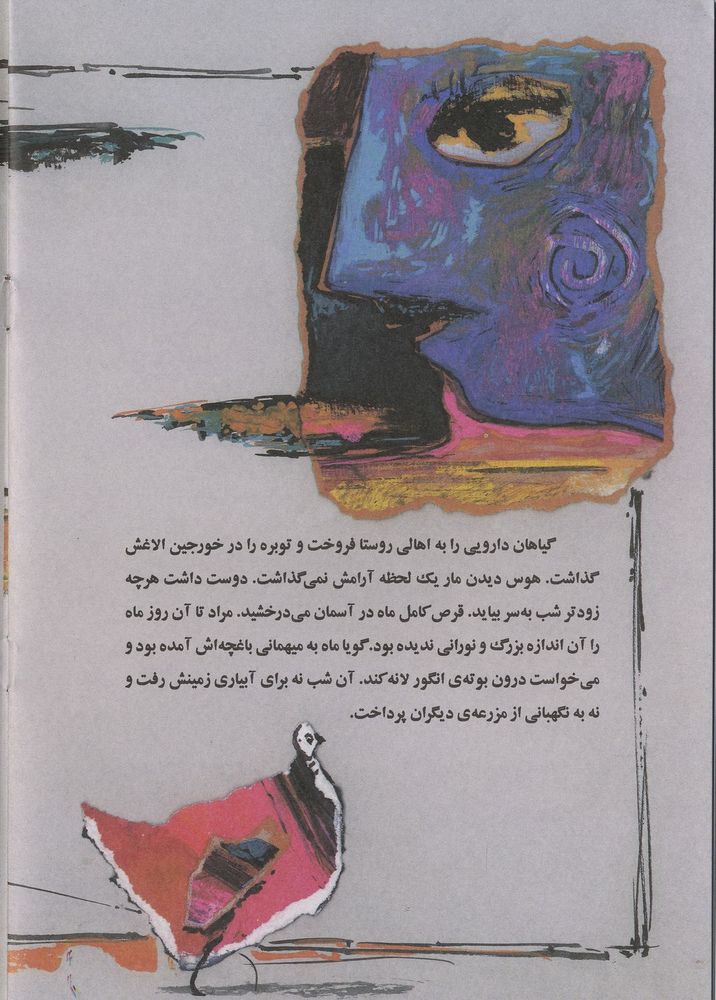 گیاهان دارویی را به اهالی روستا فروخت و توبره را در خورجین الاغش
گذاشت. هوس دیدن مار یک لحظه آرامش نمی‌گذاشت. دوست داشت هرچه
زودتر شب به‌سر بیاید. قرص کامل ماه در آسمان می‌درخشید. مراد تا آن روز ماه
را آن اندازه بزرگ و نورانی ندیده بود. گویا ماه به میهمانی باغچه‌اش آمده بود و
می‌خواست درون بوته‌ی انگور لانه کند. آن شب نه برای آبیاری زمینش رفت و
نه به نگهبانی از مزرعه‌ی دیگران پرداخت.